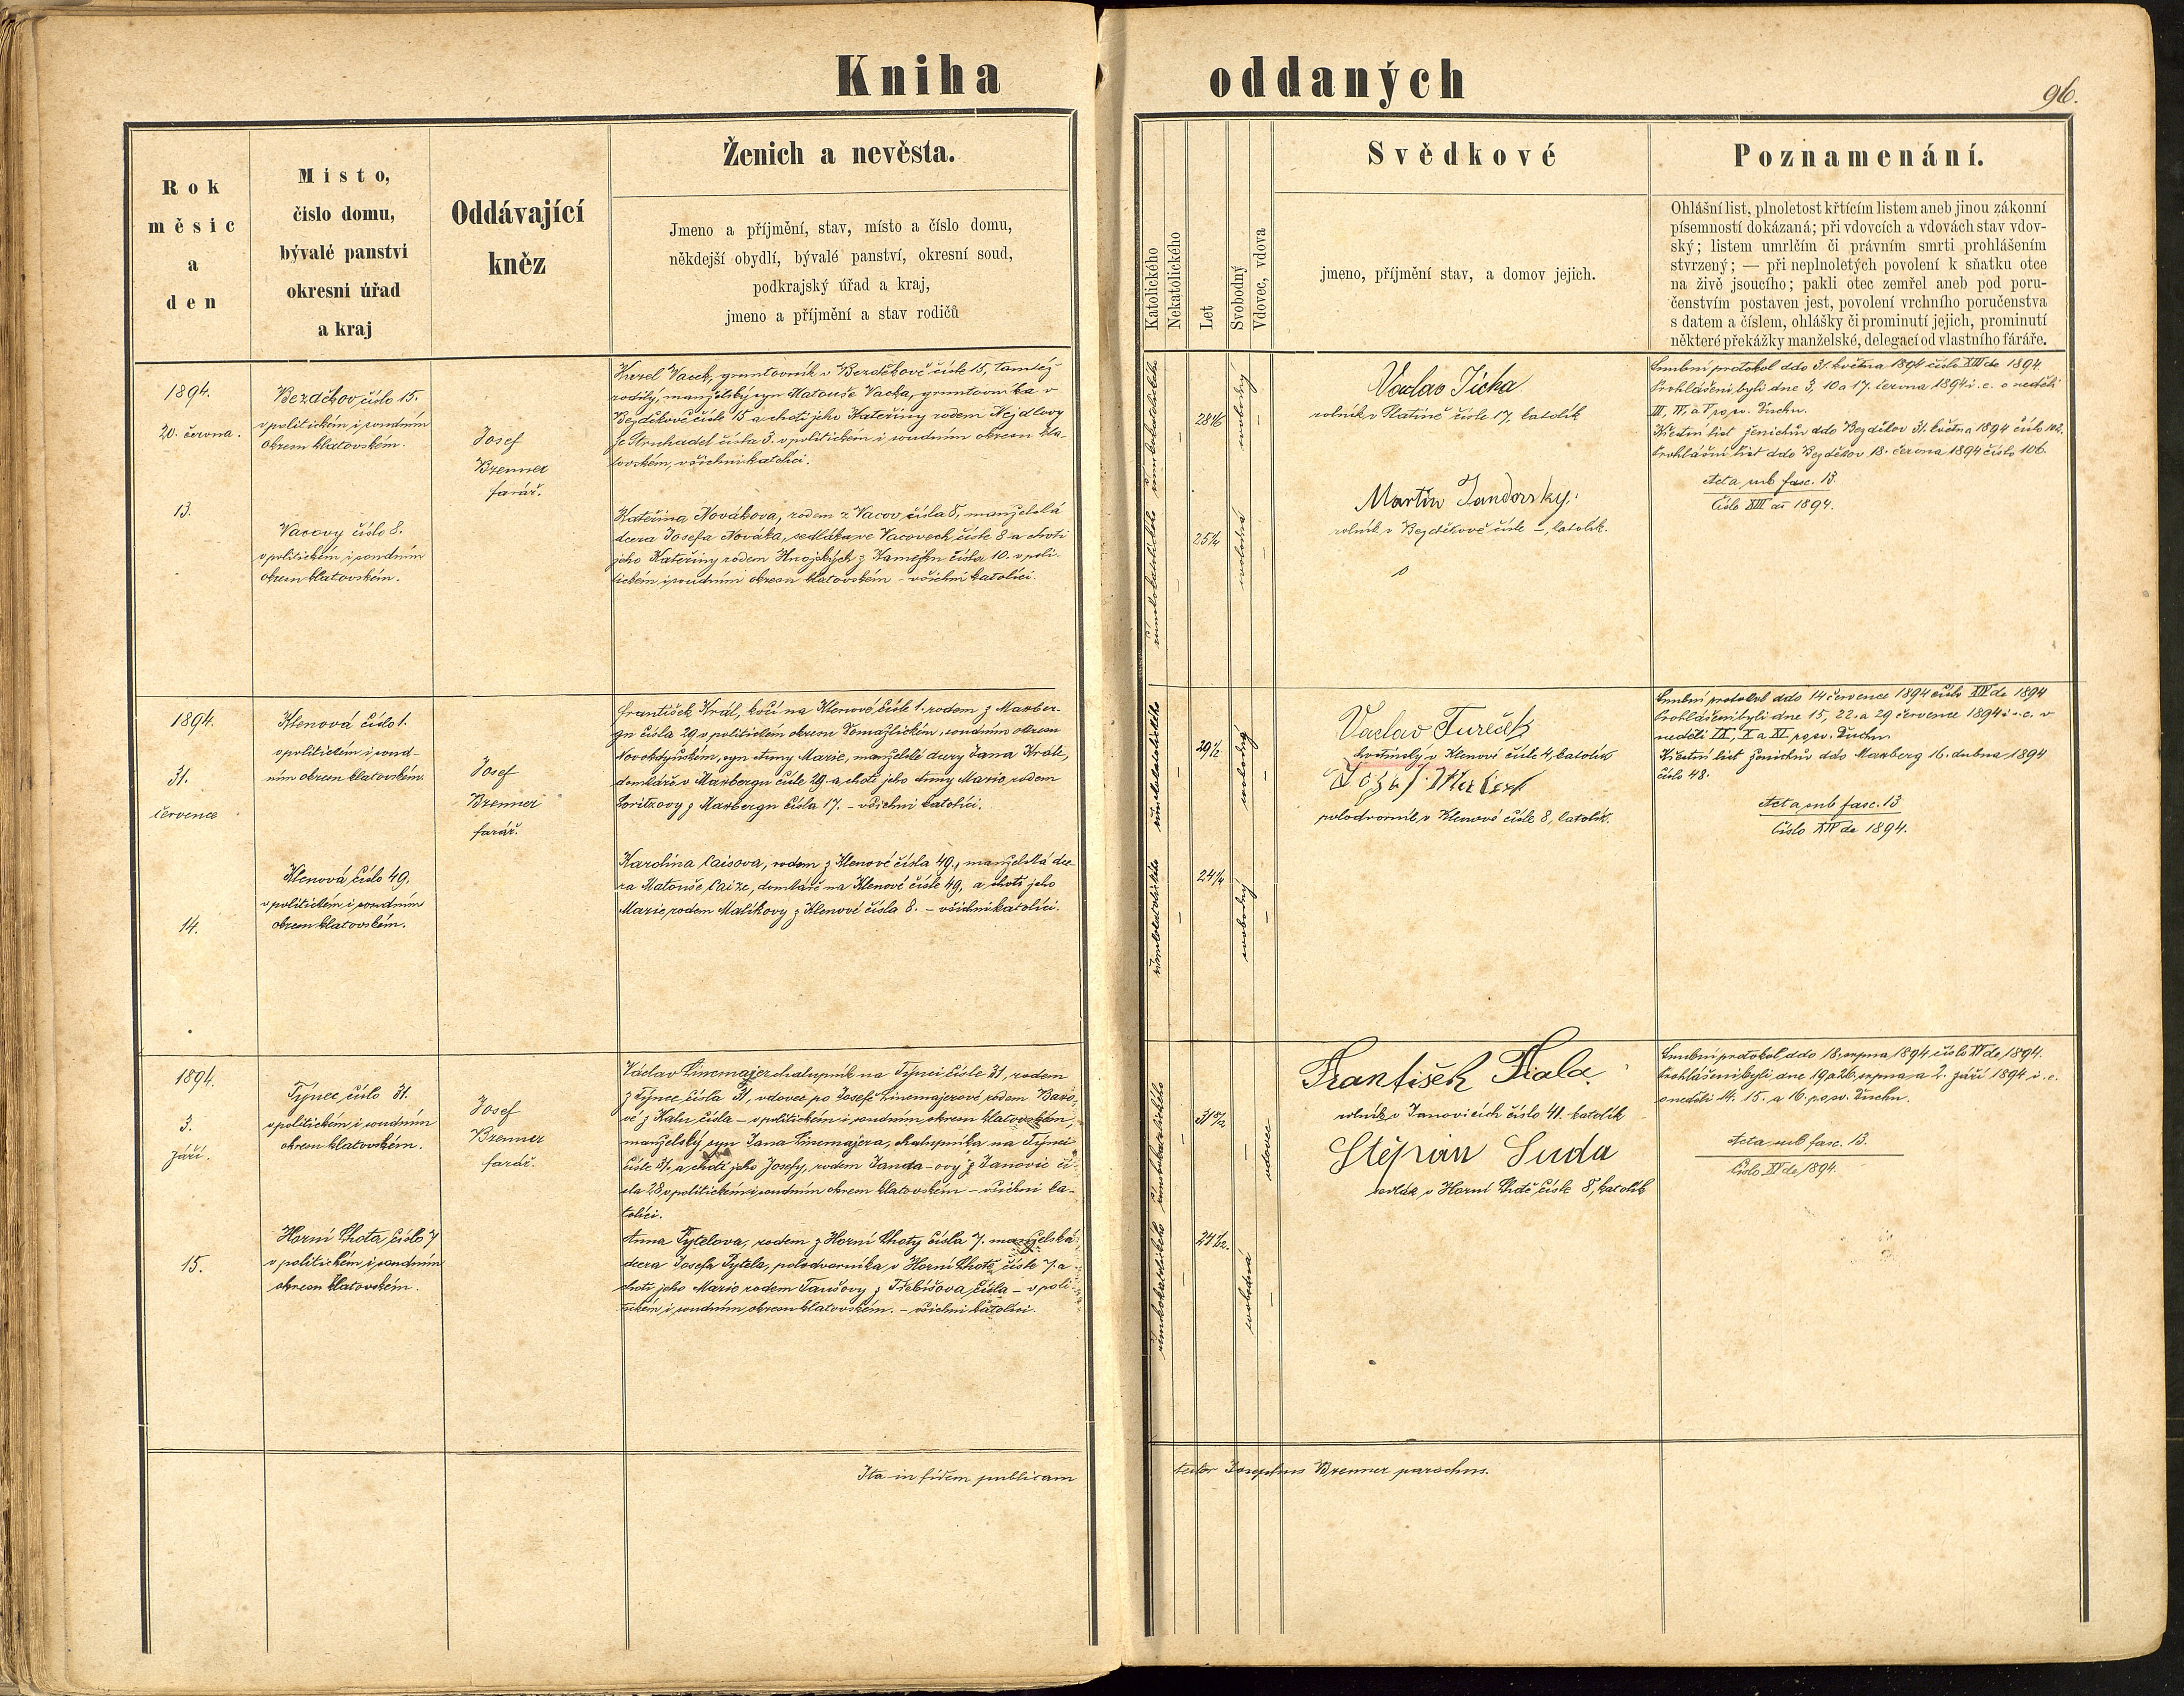 Kniha oddaných
96.
Rok
měsíc
a
den
Místo,
číslo domu,
bývalé panství
okresní úřad
a kraj
Oddávající
kněz
Ženich a nevěsta.
Jmeno a příjmění, stav, místo a číslo domu,
někdejší obydlí, bývalé panství, okresní soud,
podkrajský úřad a kraj,
jmeno a příjmění a stav rodičů
Katolického
Nekatolického
Let
Svobodný
Vdovec, vdova
Svědkové
jmeno, příjmění stav, a domov jejich.
Poznamenání.
Ohlášní list, plnoletost křtícím listem aneb jinou zákonní
písemností dokázaná; při vdovcích a vdovách stav vdov-
ský; listem umrlčím či právním smrti prohlášením
stvrzený; — při neplnoletých povolení k sňatku otce
na živě jsoucího; pakli otec zemřel aneb pod poru-
čenstvím postaven jest, povolení vrchního poručenstva
s datem a číslem, ohlášky či prominutí jejich, prominutí
některé překážky manželské, delegací od vlastního faráře.
1894.
20. června.
13.
Bezděkov číslo 15.
v politickém i soudním
okresu klatovském.
Vacovy číslo 8.
v politickém i soudním
okresu klatovském.
Josef
Brenner
farář.
Karel Vacek, gruntovník v Bezděkově čísle 15, tamtéž
rodilý, manželský syn Matouše Vacka, gruntovníka v
Bezděkově čísle 15 a choti jeho Kateřiny rodem Nejdlovy
ze Struhadel čísla 3. v politickém i soudním okresu kla-
tovském, všichni katolíci.
Kateřina Nováková, rodem z Vacov čísla 8, manželská
dcera Josefa Nováka, sedláka ve Vacovech čísle 8 a choti
jeho Kateřiny rodem Hnojských z čísla 10. v poli-
tickém i soudním okresu klatovském – všichni katolíci.
římskokatolického
římskokatolického
25¼
svobodný
svobodná
Vaclav Ticha
rolník v čísle 17, katolík
Martin Jandovsky.
rolník v Bezděkově čísle –, katolík.
Snubní protokol ddo 31. května 1894 číslo XIII de 1894.
Prohlášeni byli dne 3, 10 a 17. června 1894 i. e. o neděli
III, IV, a V po sv. Duchu.
Křestní list ženichův ddo Bezděkov 31. května 1894 číslo 102.
Prohlášní list ddo Bezděkov 18. června 1894 číslo 106.
Acta sub fasc. 13.
Číslo XIII an 1894.
1894.
31.
července
14.
Klenová číslo 1.
v politickém i soud-
ním okresu klatovském.
Klenová číslo 49.
v politickém i soudním
okresu klatovském.
Josef
Brenner
farář.
František Král, kočí na Klenové čísle 1. rodem z Maxber-
gu čísla 29 v politickém okresu Domažlickém, soudním okresu
Novokdyňském, syn Anny Marie, manželské dcery Jana Krále,
domkáře v Maxbergu čísle 29 a choti jeho Anny Marie rodem
z Maxbergu čísla 17. – všichni katolíci.
Karolina Caisova, rodem z Klenové čísla 49, manželská dce-
ra Matouše Caize, domkáře na Klenové čísle 49, a choti jeho
Marie rodem Malíkovy z Klenové čísla 8. – všichni katolíci.
římskokatolického
římskokatolického
29½
24¼
svobodný
svobodný
Vaclav Tureček
hostinský v Klenové čísle 4, katolík
polodvorník v Klenové čísle 8, katolík.
Snubní protokol ddo 14 července 1894 číslo XIV de 1894
Prohlášeni byli dne 15, 22. a 29 července 1894 i. e. v
neděli IX, X a XI po sv. Duchu.
Křestní list ženichův ddo Maxberg 16. dubna 1894
číslo 48.
Acta sub fasc. 13
Číslo XIV de 1894.
1894.
3.
září.
15.
Týnec číslo 31.
v politickém i soudním
okresu klatovském.
Horní Lhota číslo 7
v politickém i soudním
okresu klatovském.
Josef
Brenner
farář.
Václav Linemajer chalupník na Týnci čísle 31, rodem
z Týnce čísla 31, vdovec po Josefě Linemajerové rodem
z čísla – v politickém i soudním okresu klatovském,
manželský syn Jana Linemajera, chalupníka na Týnci
čísle 31, a choti jeho Josefy, rodem Janda-ovy z Janovic čí-
sla 28, v politickém i soudním okresu klatovském – všichni ka-
tolíci.
Anna Pytelova, rodem z Horní Lhoty čísla 7. manželská
dcera Josefa Pytela, polodvorníka v Horní Lhotě čísle 7. a
choti jeho Marie rodem Taušovy z Třebíšova čísla – v poli-
tickém i soudním okresu klatovském. – všichni katolíci.
římskokatolického
římskokatolického
vdovec
svobodná
František Fiala.
rolník v Janovicích číslo 41. katolík
Štěpán Suda
sedlák v Horní Lhotě čísle 8, katolík
Snubní protokol ddo 18. srpna 1894 číslo XV de 1894.
Prohlášeni byli dne 19 a 26. srpna a 2. září 1894 i. e.
o neděli 14. 15. a 16. po sv. Duchu.
Acta sub fasc. 13.
Číslo XV de 1894.
Ita in fidem publicam testor Josephus Brenner parochus.